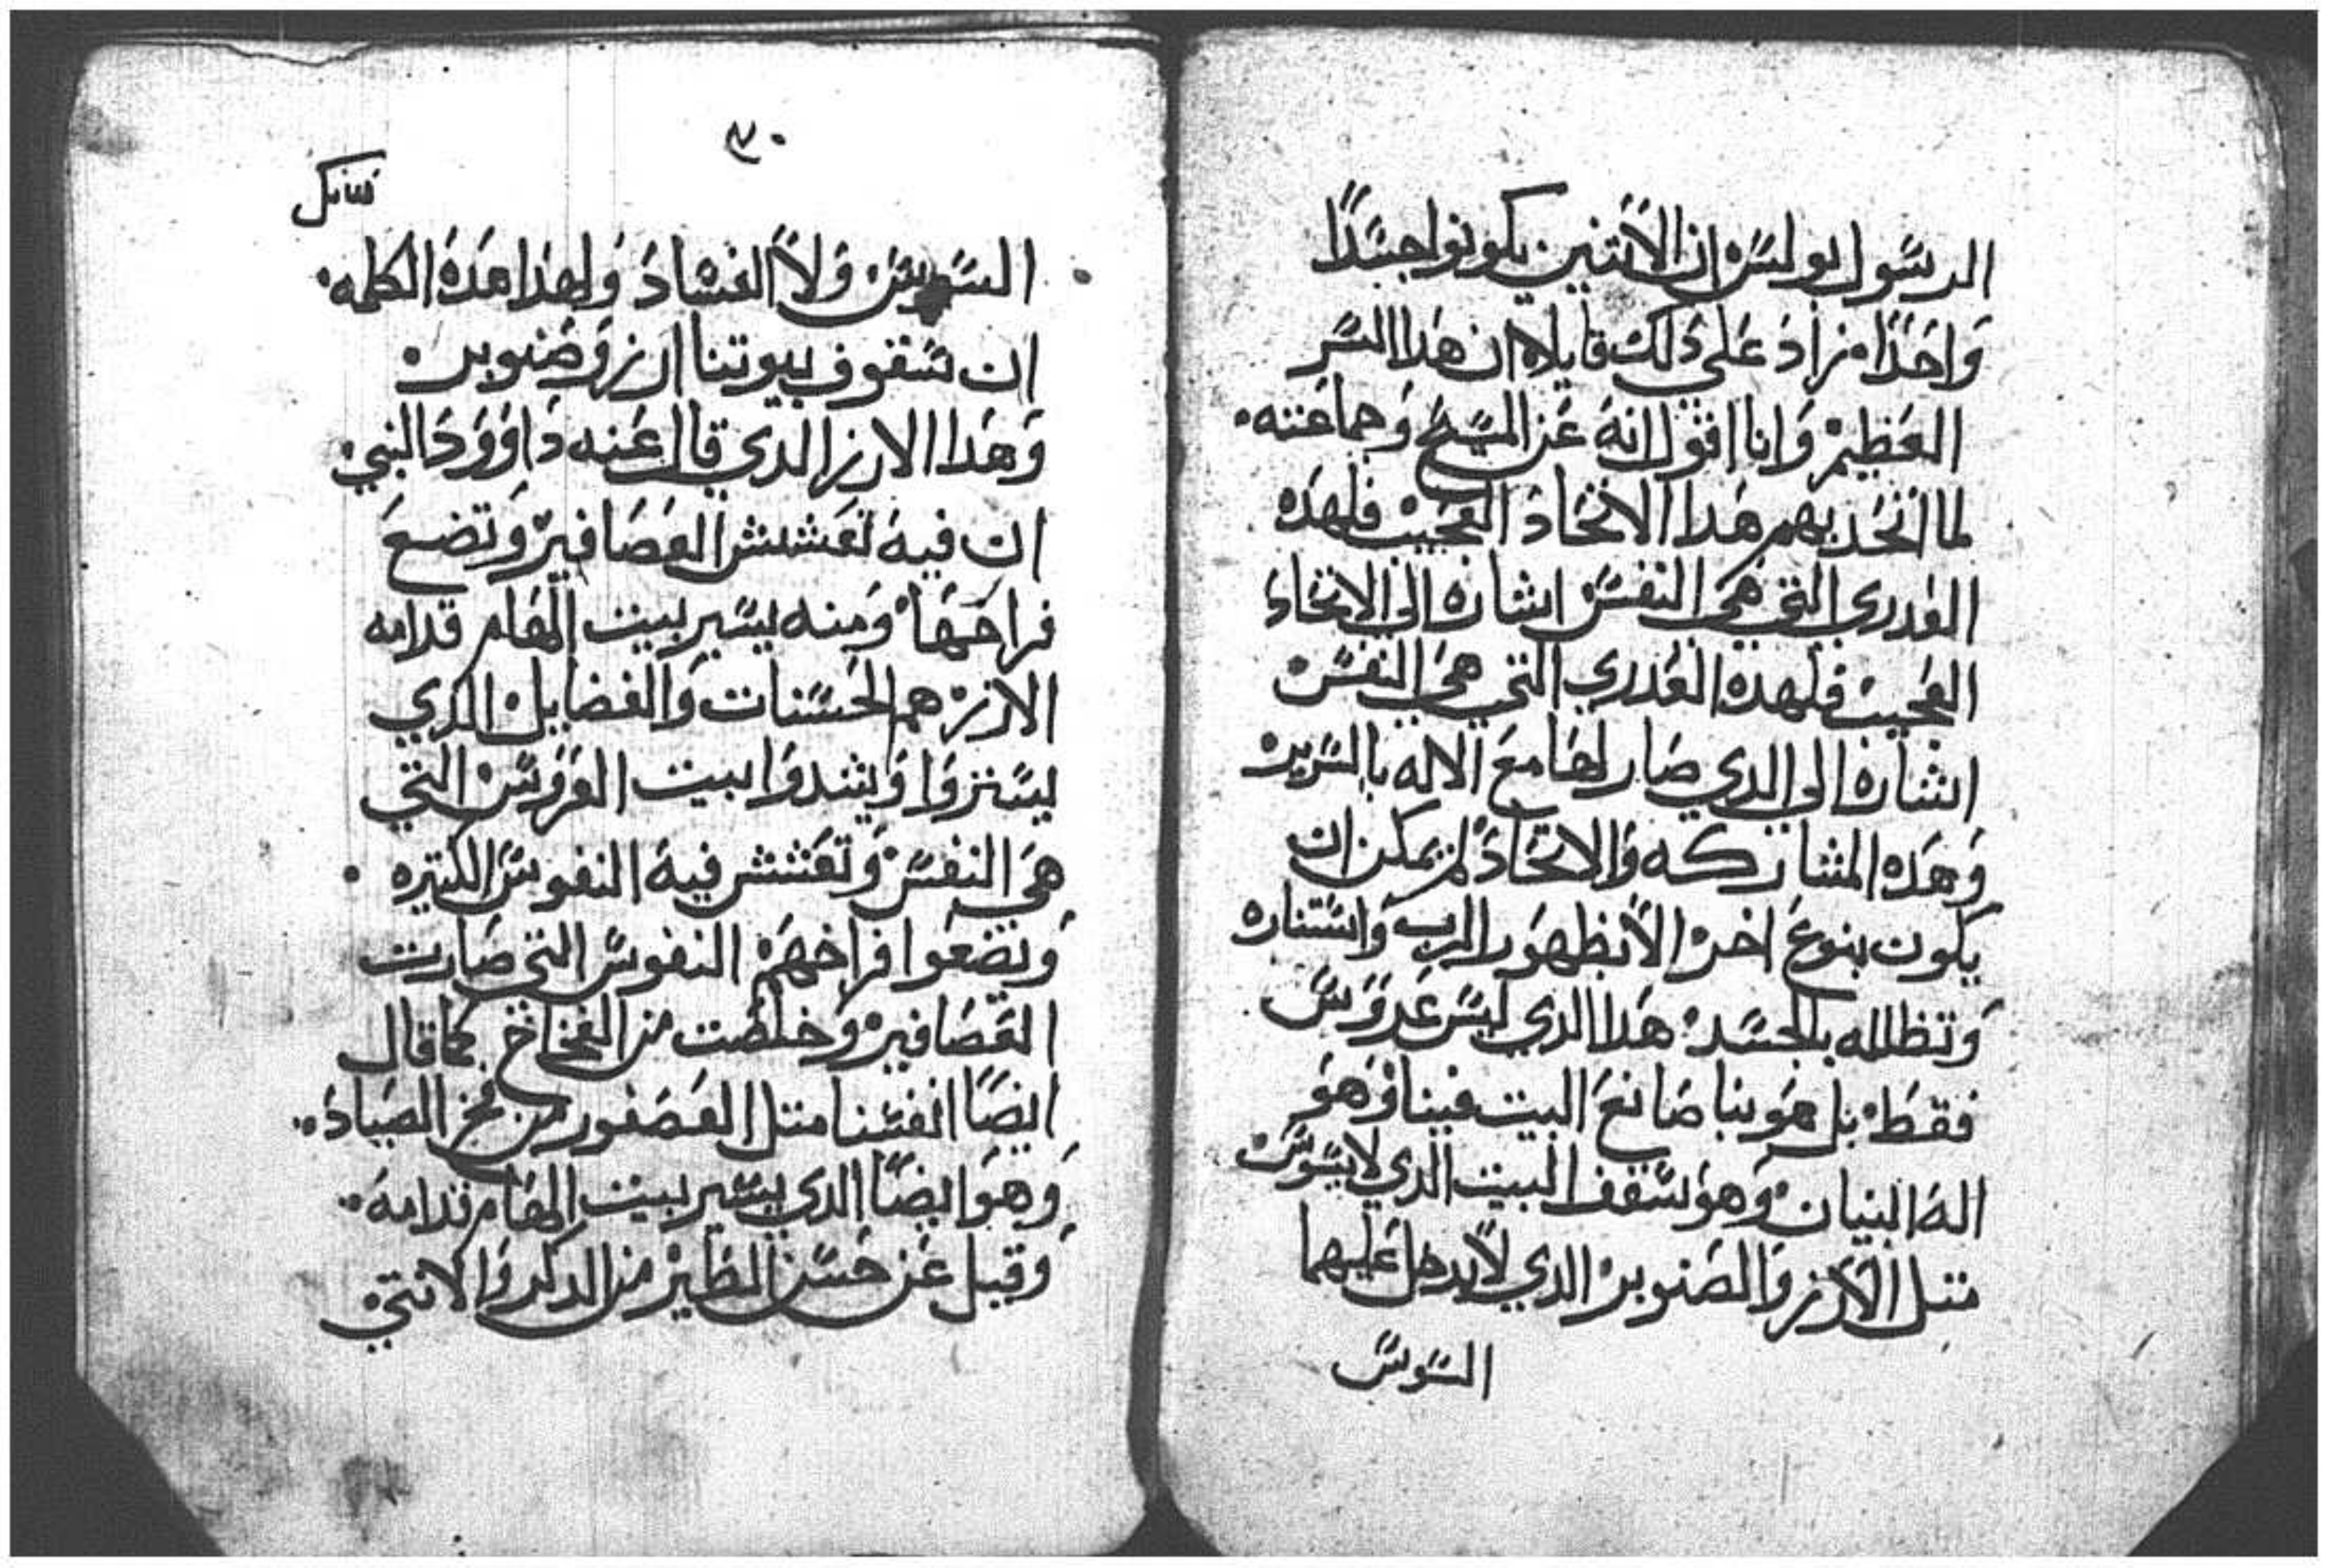 الرسول بولس ان الاتنين يكونوا جسدًا
واحدًا فزاد على ذلك قايلا ان هدا السر
العظيم وانا اقول انه عن المسيح وجماعته
لما اتحد بهم هدا الاتحاد العجيب فلهده
العدري التي هي النفس اشاره الى الاتحاد
العجيب فلهده العدري التي هي النفس
اشاره الى الدي صار لها مع الاله بالسرير
وهده المشاركه والاتحاد لم يمكن ان
يكون بنوع اخر الا بظهور الرب واستتاره
وتظلله بالجسد هدا الدي ليس عروس
فقط بل هو بنا صانع البيت فينا وهو
اله البنيان وهو سقف البيت الدي لا يسوس
متل الارز والصنوبر الدي لا يدخل عليهما
السوس
٣٠
السوس ولا الفساد ولهذا هده الكلمه
ان سقوف بيوتنا ارز وصنوبر
وهدا الارز الدي قال عنه داوود النبي
ان فيه تعشش العصافير وتضع
فراخها ومنه يسير بيت الهام قدامه
الارز هم الحسنات والفضايل الدي
يستروا ويشدوا بيت العروس التي
هي النفس وتعشش فيه النفوس الكتيره
وتضعوا فراخهم النفوس التي صارت
العصافير وخلصت من الفخاخ كما قال
ايضًا انفسنا متل العصفور من فخ الصياد
وهو ايضًا الدي يسير بيت الهام قدامه
وقيل عن حسن الطير من الدكر والانتى